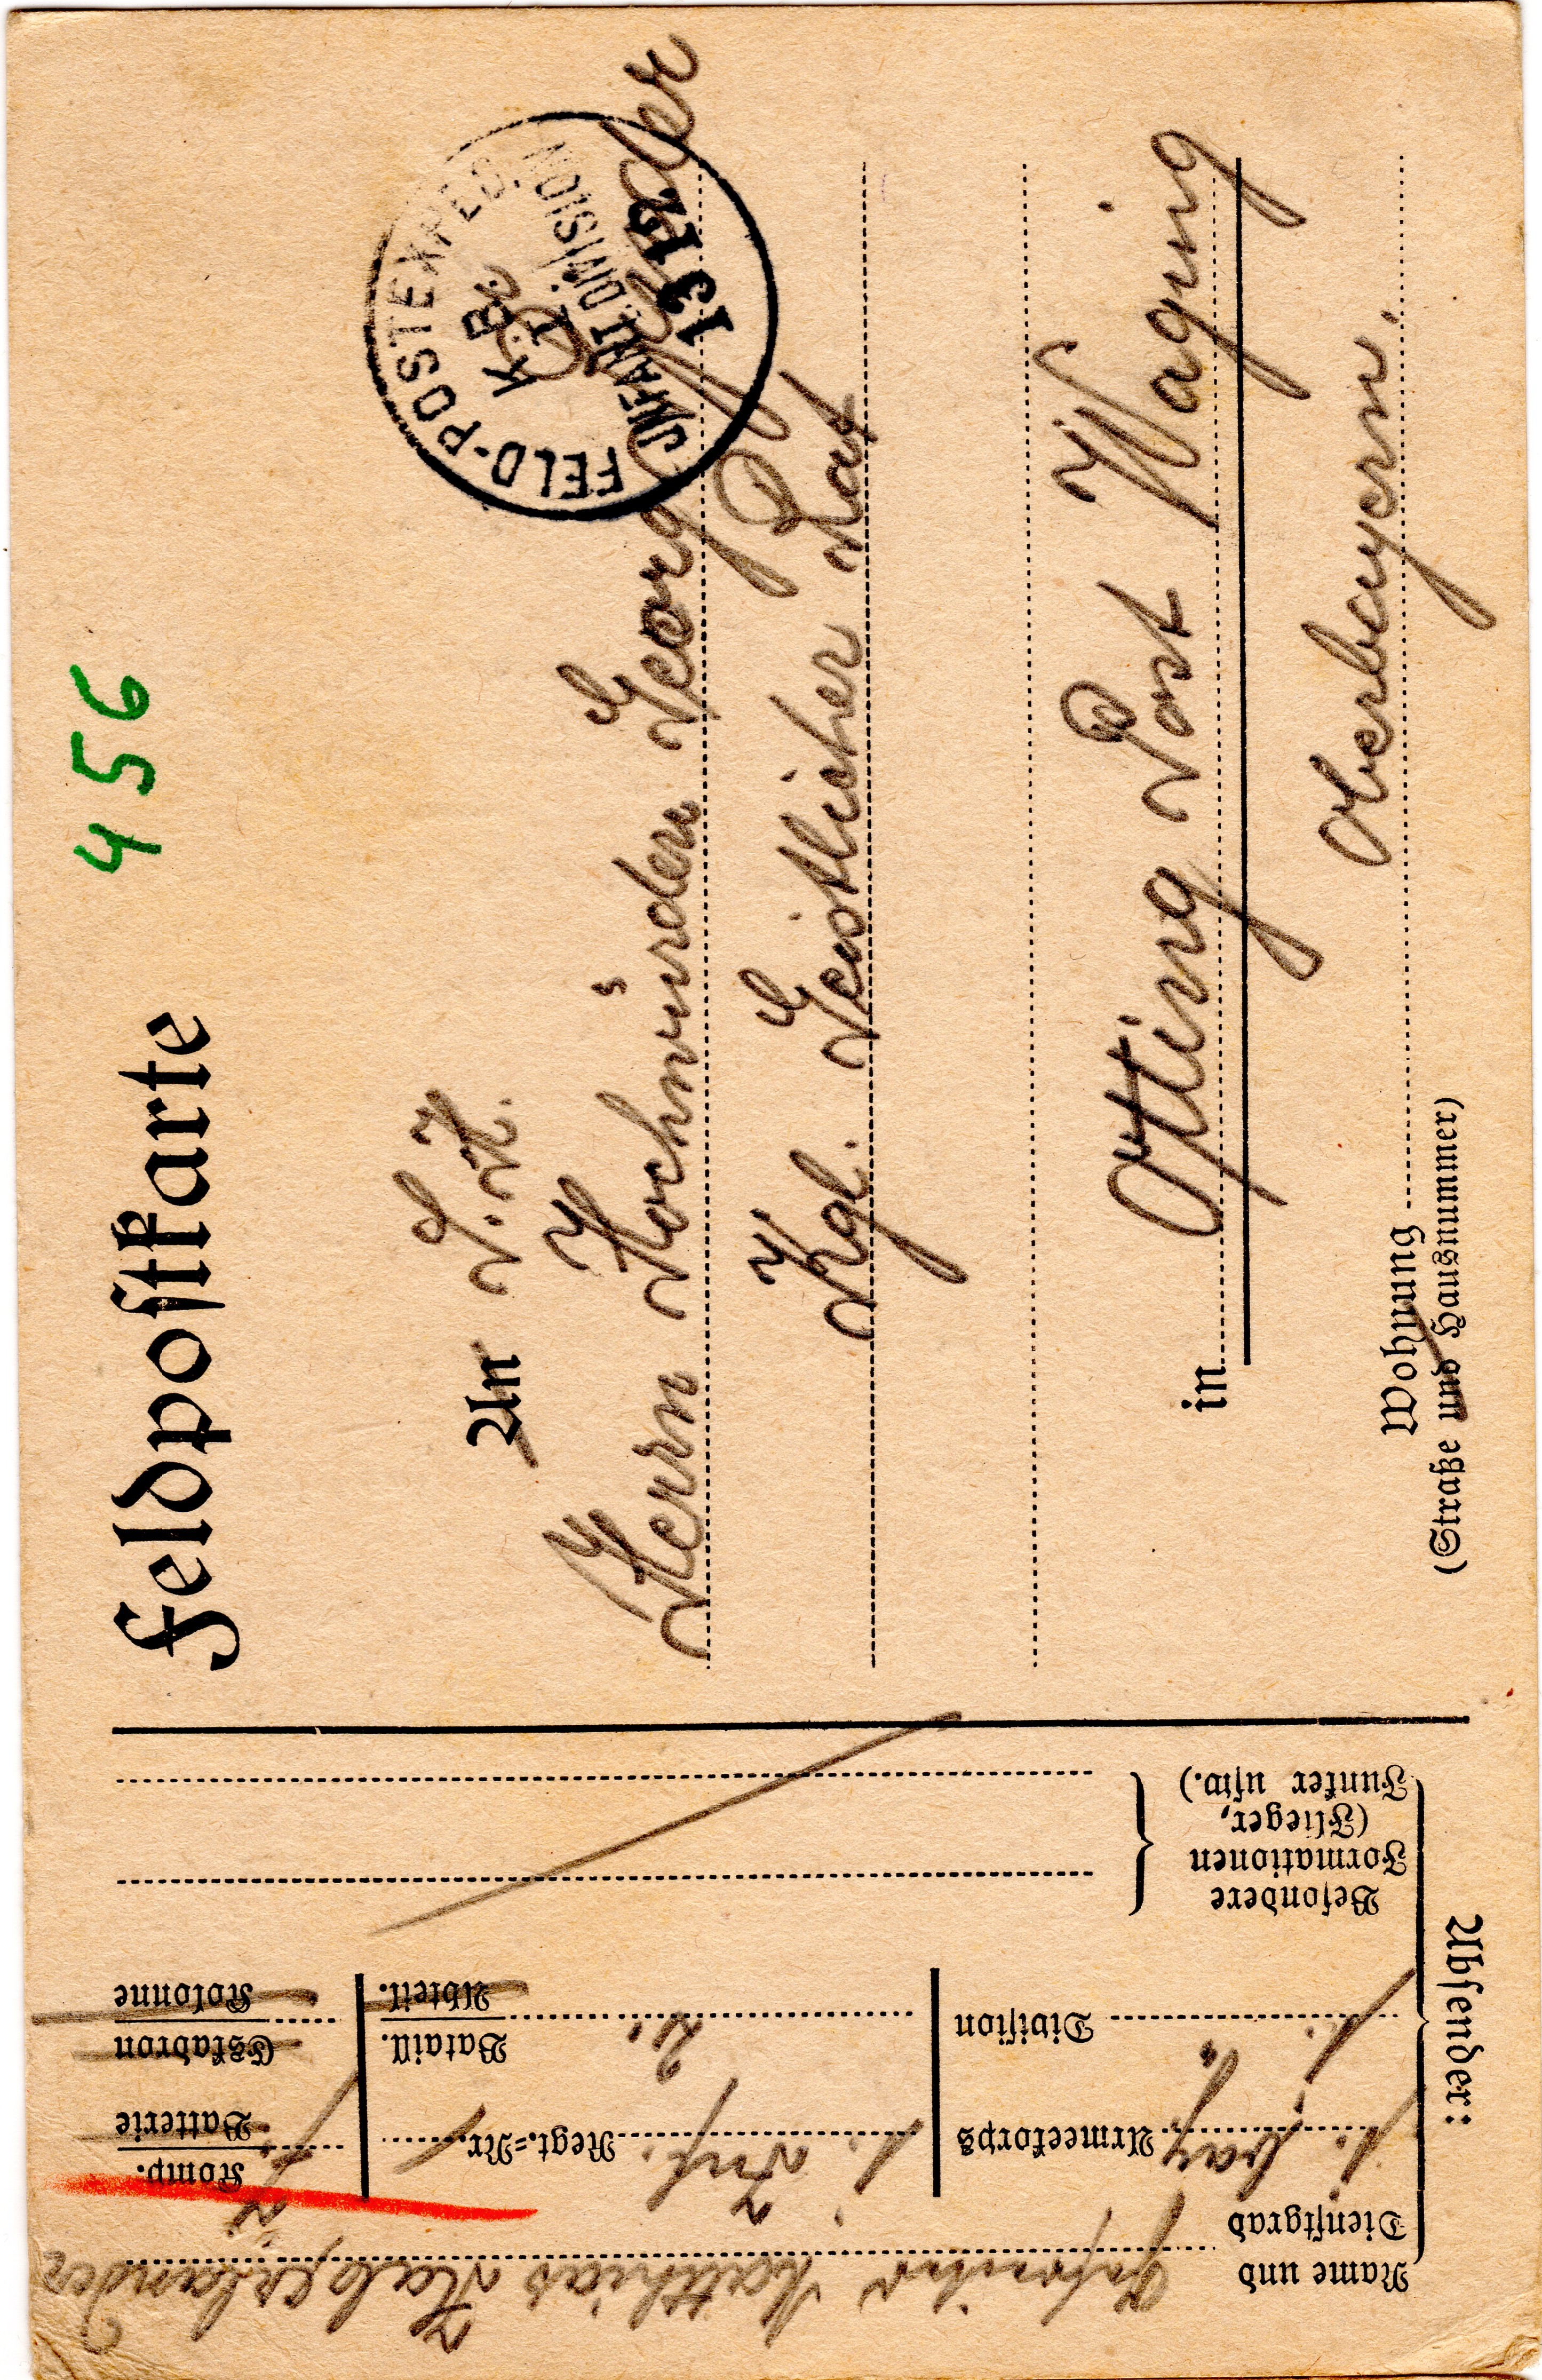 Feldpostkarte
456
FELD-POSTEXPED.
K. B.
I.
INFANT. DIVISION
13 12
An S. H.
Herrn Hochwürden Georg
Kgl. Geistlicher Rat
in Otting Post Waging
Oberbayern.
Wohnung
(Straße und Hausnummer)
Absender:
Name und
Dienstgrad
Matthias Haberlander
1. bay. Armeekorps
1. Division
1. Inf. Regt.-Nr.
2. Bataill.
Abteil.
7. Komp.
Batterie
Eskadron
Kolonne
Besondere
Formationen
(Flieger,
Funker usw.)